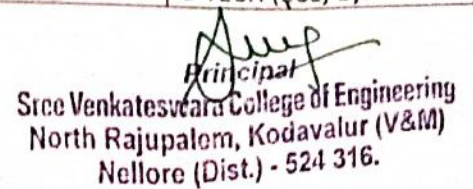 Principal
Sree Venkateswara College of Engineering
North Rajupalem, Kodavalur (V&M)
Nellore (Dist.) - 524 316.